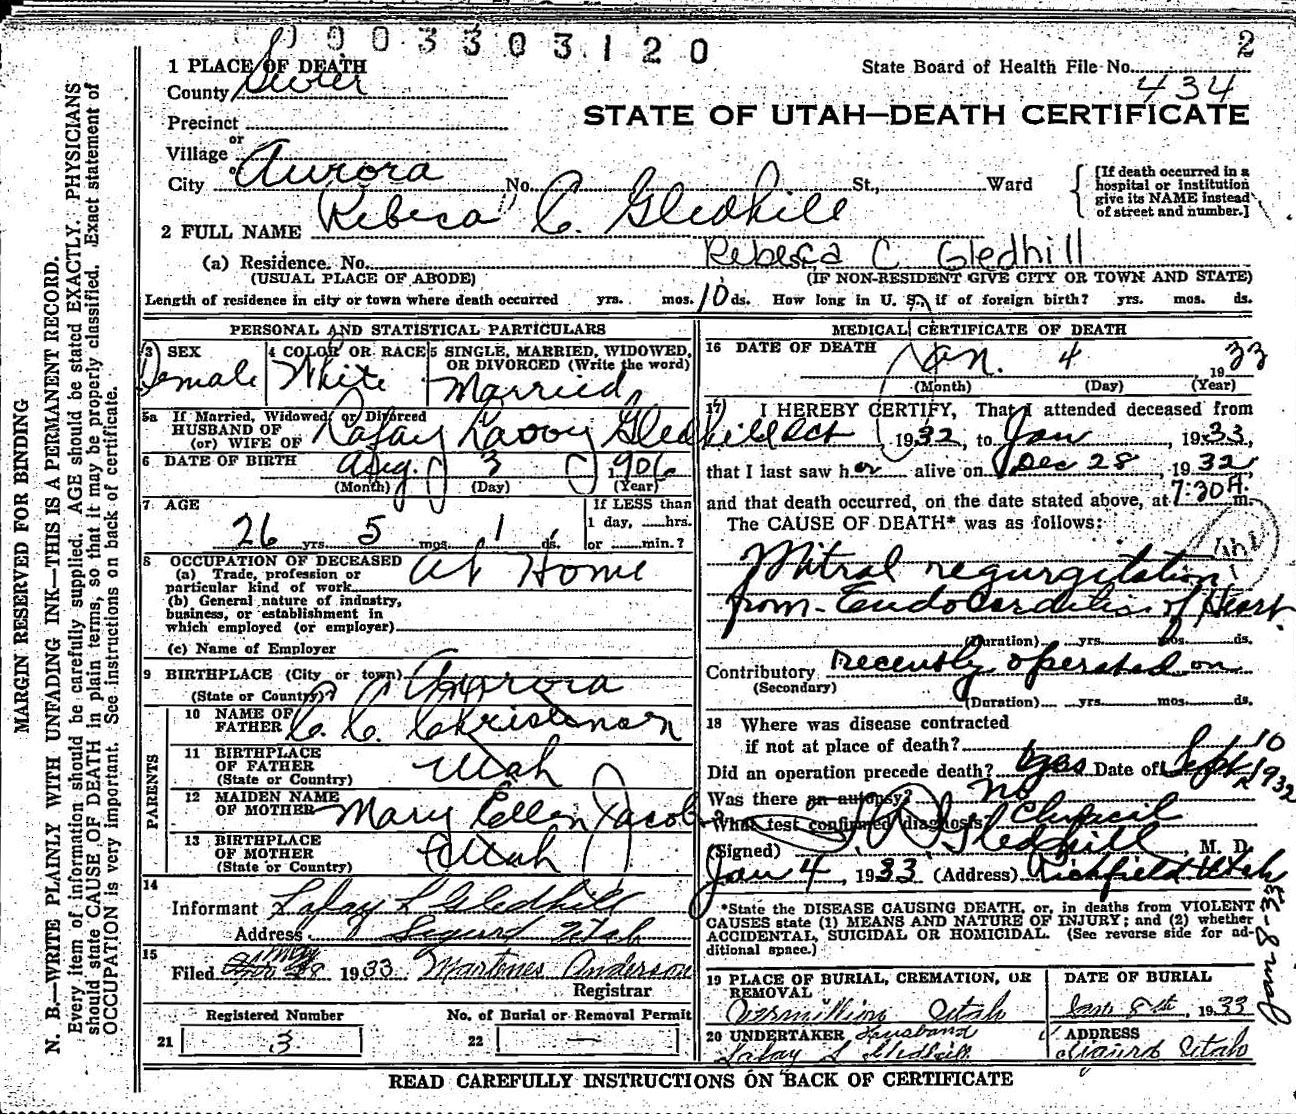 0003303120
2
1 PLACE OF DEATH
State Board of Health File No.
County Sevier
434
STATE OF UTAH—DEATH CERTIFICATE
Precinct
or
Village
or
City Aurora No. St., Ward
[If death occurred in a hospital or institution give its NAME instead of street and number.]
2 FULL NAME Rebeca C. Gledhill
Rebeca C Gledhill
(a) Residence. No.
(USUAL PLACE OF ABODE) (IF NON-RESIDENT GIVE CITY OR TOWN AND STATE)
Length of residence in city or town where death occurred yrs. mos. 10 ds. How long in U. S., if of foreign birth? yrs. mos. ds.
PERSONAL AND STATISTICAL PARTICULARS
3 SEX
Female
4 COLOR OR RACE
White
5 SINGLE, MARRIED, WIDOWED, OR DIVORCED (Write the word)
Married
5a If Married, Widowed, or Divorced
HUSBAND OF
(or) WIFE OF Lafay Gledhill
6 DATE OF BIRTH Aug. 3 1906
(Month) (Day) (Year)
7 AGE
26 yrs. 5 mos. 1 ds.
If LESS than
1 day, hrs.
or min.?
8 OCCUPATION OF DECEASED
(a) Trade, profession or
particular kind of work At Home
(b) General nature of industry,
business, or establishment in
which employed (or employer)
(c) Name of Employer
9 BIRTHPLACE (City or town) Aurora
(State or Country)
PARENTS
10 NAME OF
FATHER C. C. Christensen
11 BIRTHPLACE
OF FATHER Utah
(State or Country)
12 MAIDEN NAME
OF MOTHER Mary Ellen Jacobs
13 BIRTHPLACE
OF MOTHER Utah
(State or Country)
14
Informant Lafay L Gledhill
Address Sigurd Utah
15
Filed 1933. Martines Anderson
Registrar
Registered Number
21 3
No. of Burial or Removal Permit
22 —
MEDICAL CERTIFICATE OF DEATH
16 DATE OF DEATH Jan. 4 1933
(Month) (Day) (Year)
17 I HEREBY CERTIFY, That I attended deceased from
Oct 1932, to Jan 1933,
that I last saw her alive on Dec 28, 1932
and that death occurred, on the date stated above, at 7:30 A. m.
The CAUSE OF DEATH* was as follows:
Mitral regurgitation
from Endocarditis of Heart.
(Duration) yrs. mos. ds.
Contributory recently operated on
(Secondary)
(Duration) yrs. mos. ds.
18 Where was disease contracted
if not at place of death?
Did an operation precede death? yes Date of Sept 10 1932
Was there an autopsy? no
What test confirmed diagnosis? Clinical
(Signed) Gledhill, M. D.
Jan 4, 1933 (Address) Richfield Utah
*State the DISEASE CAUSING DEATH, or, in deaths from VIOLENT
CAUSES state (1) MEANS AND NATURE OF INJURY; and (2) whether
ACCIDENTAL, SUICIDAL OR HOMICIDAL. (See reverse side for ad-
ditional space.)
19 PLACE OF BURIAL, CREMATION, OR
REMOVAL
Vermillion Utah
DATE OF BURIAL
Jan. 8st, 1933
20 UNDERTAKER Husband
Lafay L Gledhill
ADDRESS
Sigurd Utah
READ CAREFULLY INSTRUCTIONS ON BACK OF CERTIFICATE
MARGIN RESERVED FOR BINDING
N. B.—WRITE PLAINLY WITH UNFADING INK—THIS IS A PERMANENT RECORD.
Every item of information should be carefully supplied. AGE should be stated EXACTLY. PHYSICIANS
should state CAUSE OF DEATH in plain terms, so that it may be properly classified. Exact statement of
OCCUPATION is very important. See instructions on back of certificate.